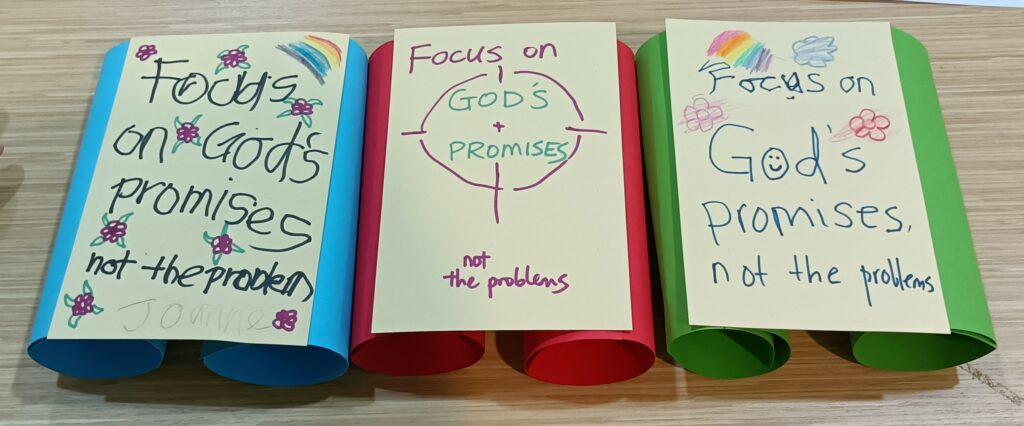 Focus
on God's
promises
not the problem
Joanne
Focus on
GOD'S
PROMISES
not
the problems
Focus on
God's
promises,
not the problems